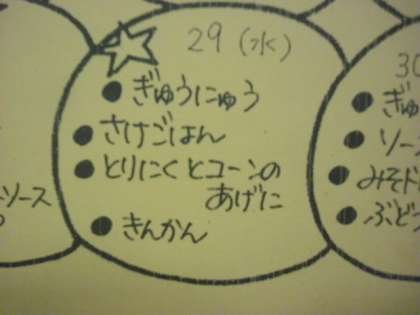 29 (水)
ぎゅうにゅう
さけごはん
とりにくとコーンの
あげに
きんかん
30
ぎゅ
ソー
みそド
ぶどう
ソース